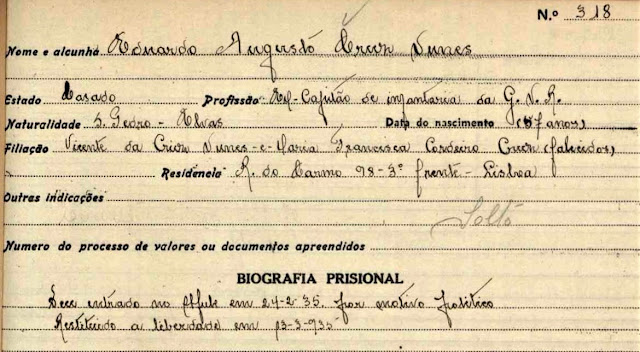 N.º 318
Nome e alcunha Eduardo Augusto Nunes
Estado Casado Profissão Ex-Capitão de infantaria da G. N. R.
Naturalidade S. Pedro - Elvas Data do nascimento (57 anos)
Filiação Vicente da Nunes - e Maria Francisca Cordeiro (falecidos)
Residencia R. do Carmo 98-3º frente - Lisboa
Outras indicações
Solto
Numero do processo de valores ou documentos apreendidos
BIOGRAFIA PRISIONAL
Deu entrada no em 24-2-35. por motivo politico
Restituido a liberdade em 13-3-935